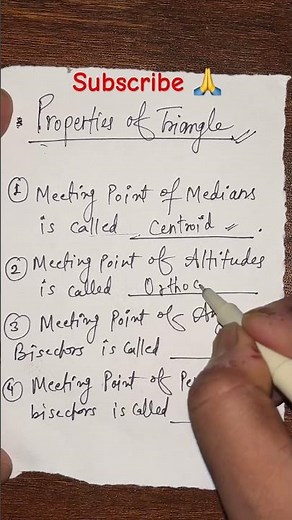 Subscribe 🙏
Properties of Triangle
① Meeting Point of Medians
is called Centroid.
② Meeting Point of Altitudes
is called Orthoc
③ Meeting Point of An
Bisectors is called
④ Meeting Point of Pe
bisectors is called